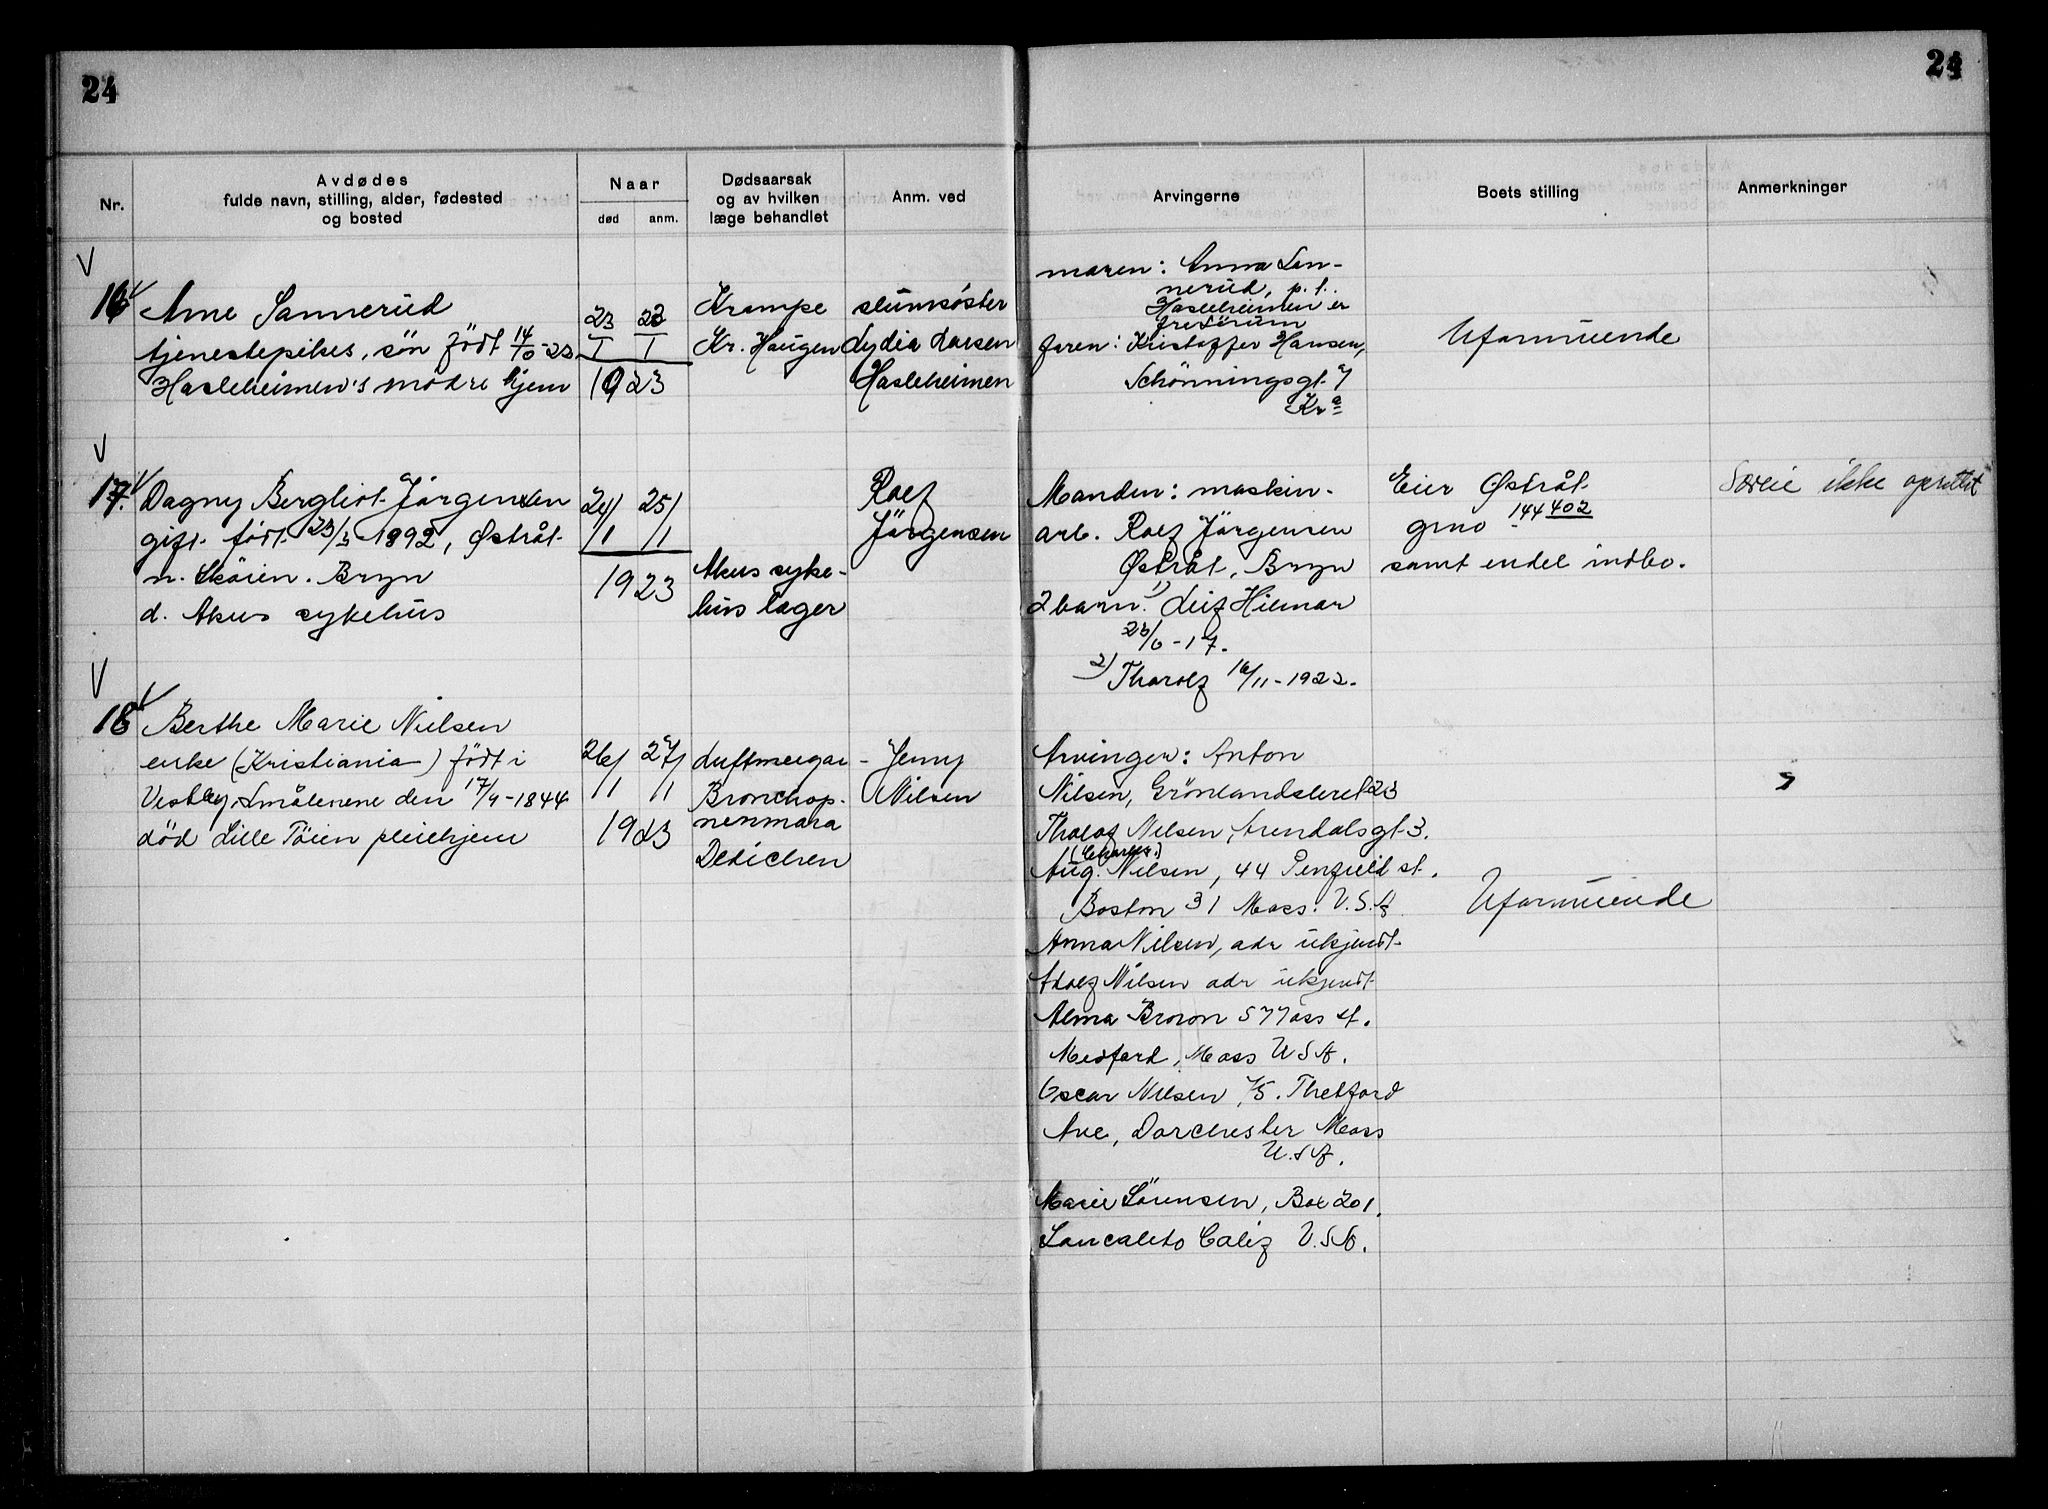 24
24
Nr.
Avdødes
fulde navn, stilling, alder, fødested
og bosted
Naar
død
anm.
Dødsaarsak
og av hvilken
læge behandlet
Anm. ved
Arvingerne
Boets stilling
Anmerkninger
16
Arne Sannerud
tjenestepikes, sön födt 14/10-22
Hasleheimen's mödre hjem
23/1 23/1
1923
Krampe
Kr. Haugen
slumsöster
Lydia Larsen
Hasleheimen
moren: Anna San-
nerud, p.t.
Hasleheimen er
fra Sörum
faren: Kristoffer Hansen,
Schönningsgt. 7
Kra
Uformuende
17.
Dagny Bergliot Jörgensen
gift. födt 23/3 1892, Østråt
n. Sköien. Bryn
d. Akus sykehus
24/1 25/1
1923
Akus syke-
hus læger
Rolf
Jörgensen
Manden: maskin-
arb. Rolf Jörgensen
Østråt, Bryn
2 barn: 1) Leif Hilmar
26/6-17.
2) Tharolf 16/11-1922.
Eier Østråt
gno 144 402
samt endel indbo.
Særeie ikke oprettet
18
Berthe Marie Nielsen
enke (Kristiania) födt i
Vestby, Smålenene den 17/9-1844
död Lille Töien pleiehjem
26/1 27/1
1923
Bronchop-
nevmoni
Dedichen
Jenny
Nilsen
Arvinger: Anton
Nilsen, Grönlandsleret 23
Tholof Nilsen, Arendalsgt 3.
(Charles.)
Aug. Nilsen, 44 Penfield st.
Boston 31 Mass. U.S.A.
Anna Nilsen, adr ukjendt
Adolf Nilsen adr ukjendt
Alma Brown 57 Yoss st.
Medford, Mass USA.
Oscar Nilsen, 75. Thetford
Ave, Dorchester Mass
U.S.A.
Marie Sörensen, Box 201.
Sancalito Calif U.S.A.
Uformuende